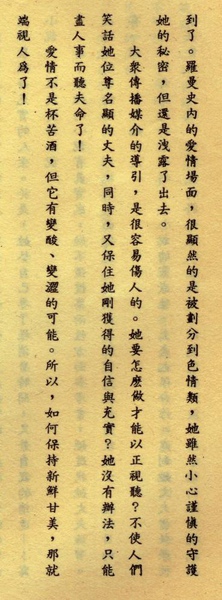 到了。羅曼史內的愛情場面，很顯然的是被劃分到色情類，她雖然小心謹慎的守護
她的秘密，但還是洩露了出去。
大衆傳播媒介的導引，是很容易傷人的。她要怎麽做才能以正視聽？不使人們
笑話她位尊名顯的丈夫，同時，又保住她剛獲得的自信與充實？她沒有辦法，只能
盡人事而聽夫命了！
愛情不是杯苦酒，但它有變酸、變澀的可能。所以，如何保持新鮮甘美，那就
端視人爲了！